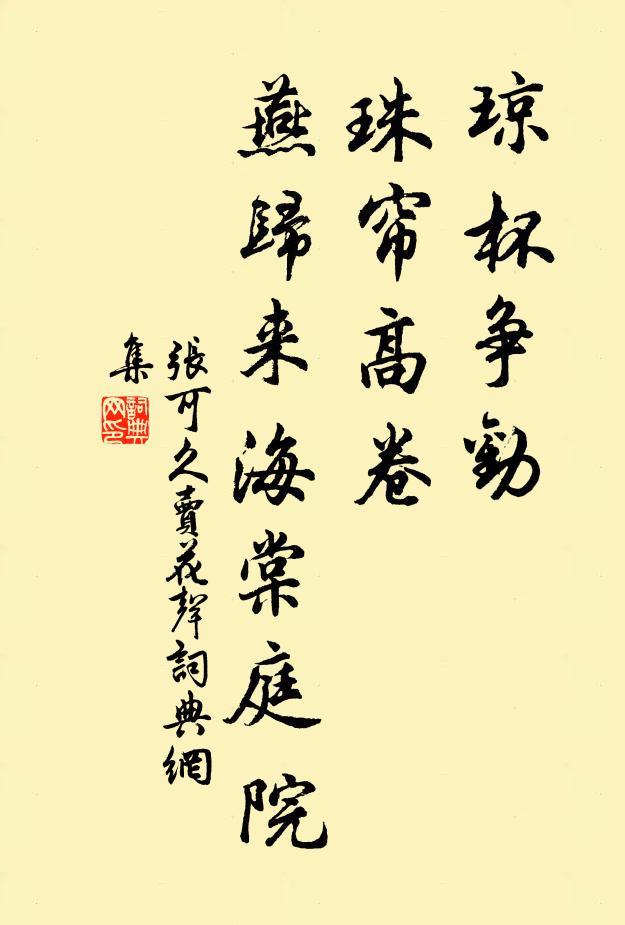 琼杯争勸
珠帘高卷
燕歸来海棠庭院
張可久賣花聲詞典網
集
詞典
网印